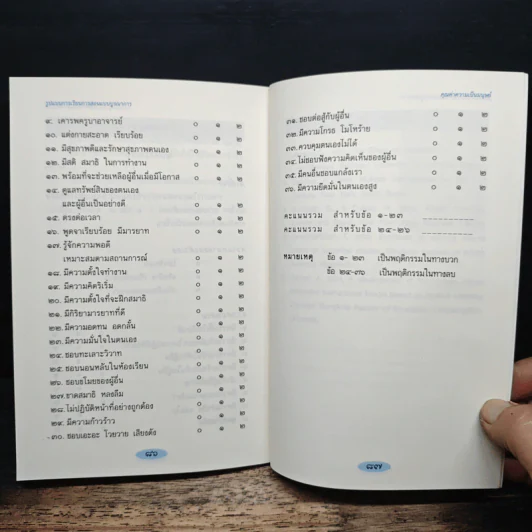 รูปแบบการเรียนการสอนแบบบูรณาการ
๙. เคารพครูบาอาจารย์ ๐ ๑ ๒
๑๐. แต่งกายสะอาด เรียบร้อย ๐ ๑ ๒
๑๑. มีสุขภาพดีและรักษาสุขภาพตนเอง ๐ ๑ ๒
๑๒. มีสติ สมาธิ ในการทำงาน ๐ ๑ ๒
๑๓. พร้อมที่จะช่วยเหลือผู้อื่นเมื่อมีโอกาส ๐ ๑ ๒
๑๔. ดูแลทรัพย์สินของตนเอง
และผู้อื่นเป็นอย่างดี ๐ ๑ ๒
๑๕. ตรงต่อเวลา ๐ ๑ ๒
๑๖. พูดจาเรียบร้อย มีมารยาท ๐ ๑ ๒
๑๗. รู้จักความพอดี
เหมาะสมตามสถานการณ์ ๐ ๑ ๒
๑๘. มีความตั้งใจทำงาน ๐ ๑ ๒
๑๙. มีความคิดริเริ่ม ๐ ๑ ๒
๒๐. มีความตั้งใจที่จะฝึกสมาธิ ๐ ๑ ๒
๒๑. มีกิริยามารยาทที่ดี ๐ ๑ ๒
๒๒. มีความอดทน อดกลั้น ๐ ๑ ๒
๒๓. มีความมั่นใจในตนเอง ๐ ๑ ๒
๒๔. ชอบทะเลาะวิวาท ๐ ๑ ๒
๒๕. ชอบนอนหลับในห้องเรียน ๐ ๑ ๒
๒๖. ชอบขโมยของผู้อื่น ๐ ๑ ๒
๒๗. ขาดสมาธิ หลงลืม ๐ ๑ ๒
๒๘. ไม่ปฏิบัติหน้าที่อย่างถูกต้อง ๐ ๑ ๒
๒๙. มีความก้าวร้าว ๐ ๑ ๒
๓๐. ชอบเอะอะ โวยวาย เสียงดัง ๐ ๑ ๒
๘๖
คุณค่าความเป็นมนุษย์
๓๑. ชอบต่อสู้กับผู้อื่น ๐ ๑ ๒
๓๒. มีความโกรธ โมโหร้าย ๐ ๑ ๒
๓๓. ควบคุมตนเองไม่ได้ ๐ ๑ ๒
๓๔. ไม่ชอบฟังความคิดเห็นของผู้อื่น ๐ ๑ ๒
๓๕. มีคนอื่นชอบแกล้งเรา ๐ ๑ ๒
๓๖. มีความยึดมั่นในตนเองสูง ๐ ๑ ๒
คะแนนรวม สำหรับข้อ ๑-๒๓
คะแนนรวม สำหรับข้อ ๒๔-๒๖
หมายเหตุ ข้อ ๑- ๒๓ เป็นพฤติกรรมในทางบวก
ข้อ ๒๔-๓๖ เป็นพฤติกรรมในทางลบ
๘๗